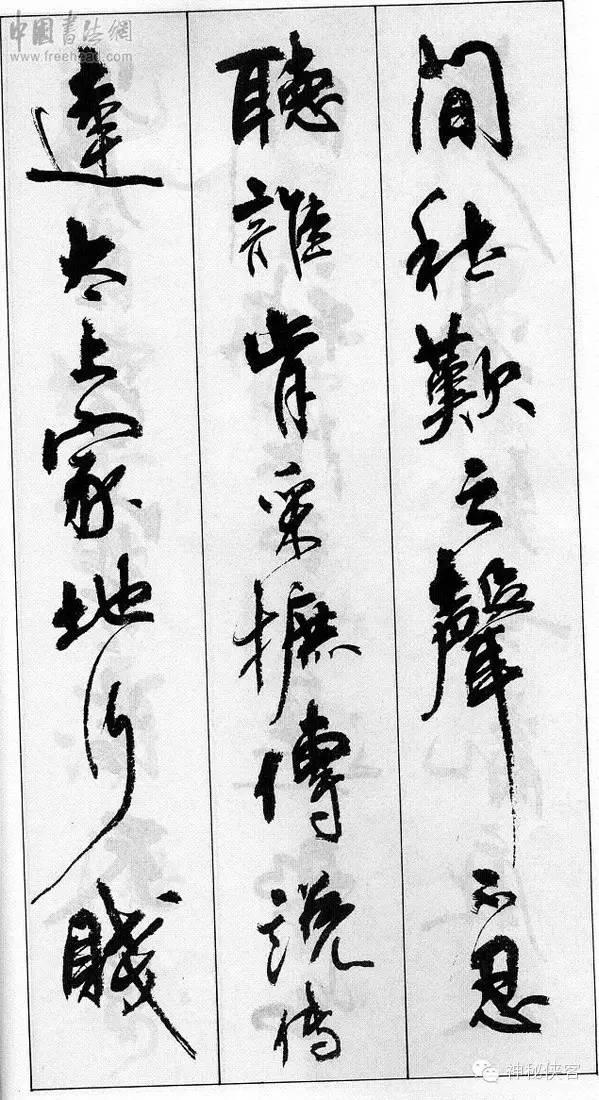 中國书法網
www.freehead.com
間歎之聲不忍
聽誰肯采摭傳說傳
達太上家地行賤
神秘侠客